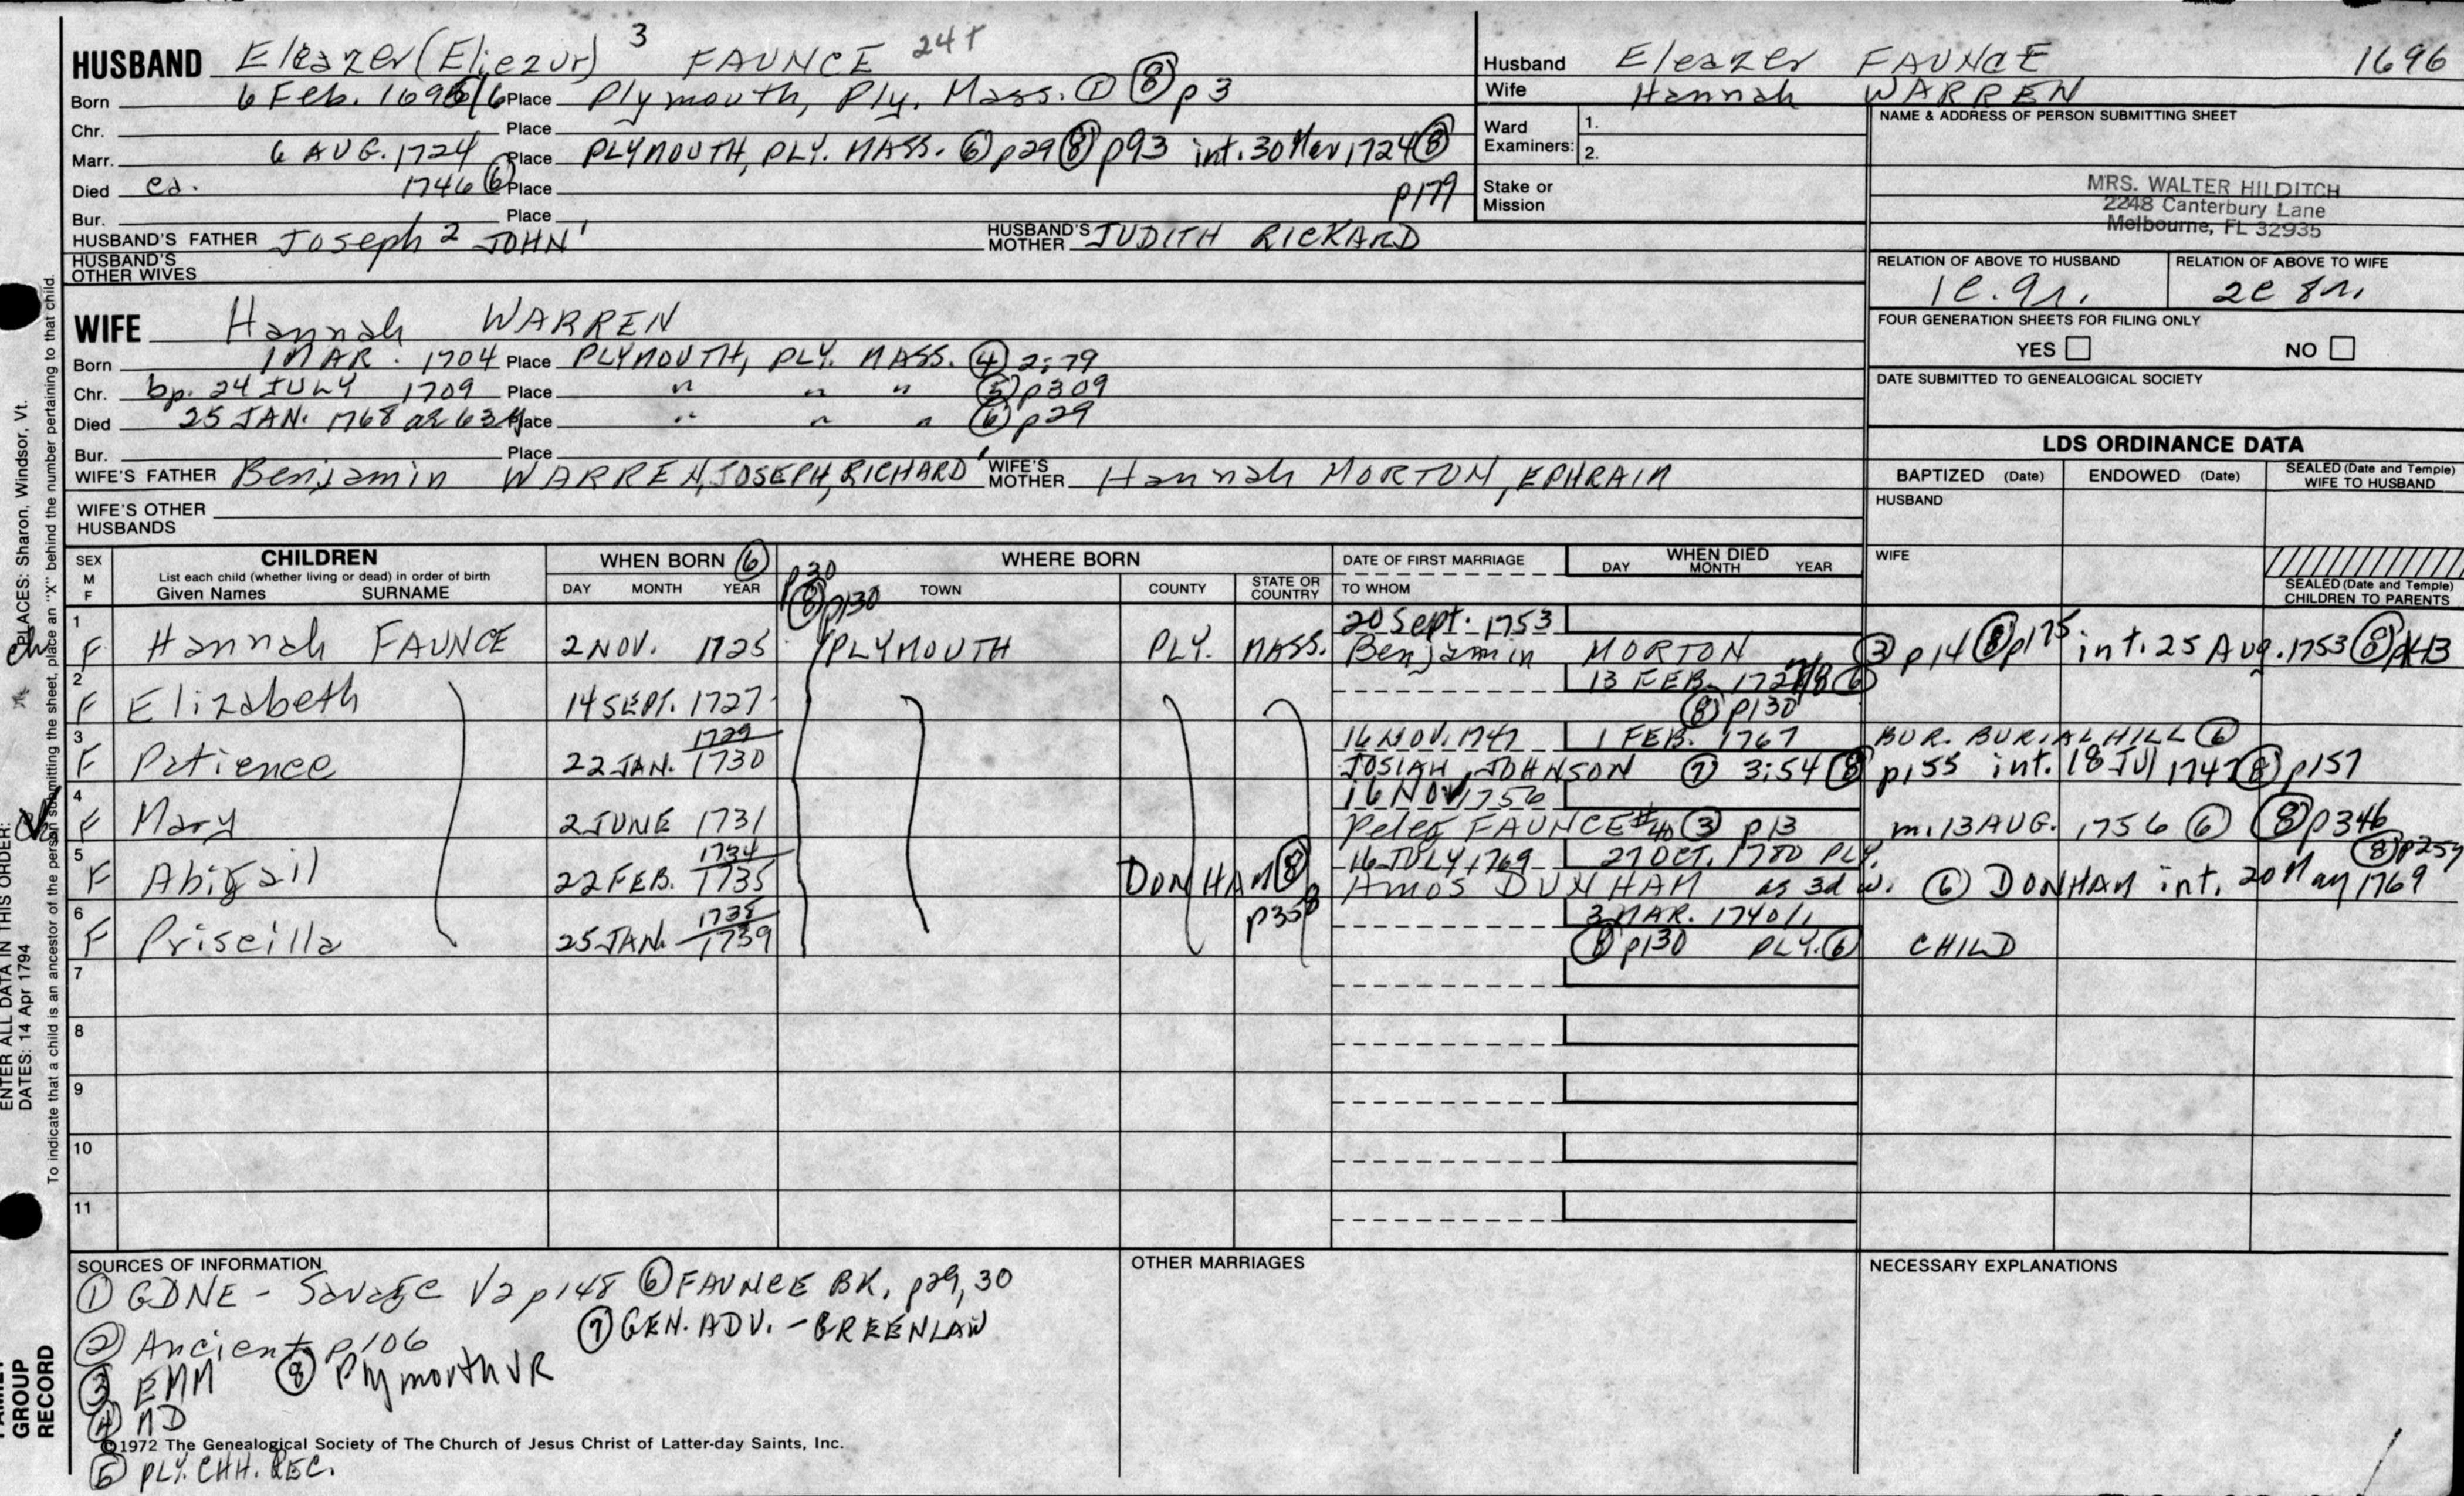 HUSBAND Eleazer (Eliezur) 3 FAUNCE 24t
Born 6 Feb. 1695/6 Place Plymouth, Ply. Mass. ① ⑧ p3
Chr. Place
Marr. 6 AUG. 1724 Place PLYMOUTH, PLY. MASS. ⑥ p29 ⑧ p93 int. 30 May 1724 ⑧
Died ca. 1746 ⑥ Place p179
Bur. Place
HUSBAND'S FATHER Joseph 2 JOHN 1 HUSBAND'S MOTHER JUDITH RICKARD
HUSBAND'S OTHER WIVES
Husband Eleazer FAUNCE 1696
Wife Hannah WARREN
Ward Examiners: 1.
2.
Stake or Mission
NAME & ADDRESS OF PERSON SUBMITTING SHEET
MRS. WALTER HILDITCH
2248 Canterbury Lane
Melbourne, FL 32935
RELATION OF ABOVE TO HUSBAND RELATION OF ABOVE TO WIFE
FOUR GENERATION SHEETS FOR FILING ONLY
YES NO
DATE SUBMITTED TO GENEALOGICAL SOCIETY
WIFE Hannah WARREN
Born 1 MAR. 1704 Place PLYMOUTH, PLY. MASS. ④ 2:79
Chr. bp. 24 JULY 1709 Place " " " ⑤ p309
Died 25 JAN. 1768 ae 63 y Place " " " ⑥ p29
Bur. Place
WIFE'S FATHER Benjamin WARREN, JOSEPH, RICHARD 1 WIFE'S MOTHER Hannah MORTON, EPHRAIM
WIFE'S OTHER HUSBANDS
LDS ORDINANCE DATA
BAPTIZED (Date) ENDOWED (Date) SEALED (Date and Temple) WIFE TO HUSBAND
HUSBAND
WIFE
SEALED (Date and Temple) CHILDREN TO PARENTS
SEX M F CHILDREN WHEN BORN ⑥ p30 WHERE BORN DATE OF FIRST MARRIAGE WHEN DIED
List each child (whether living or dead) in order of birth
Given Names SURNAME DAY MONTH YEAR ⑧ p130 TOWN COUNTY STATE OR COUNTRY TO WHOM DAY MONTH YEAR
1 20 Sept. 1753
F Hannah FAUNCE 2 NOV. 1725 PLYMOUTH PLY. MASS. Benjamin MORTON ③ p14 ⑧ p175 int. 25 Aug. 1753 ⑧ p143
2 13 FEB. 1727/8 ⑥
F Elizabeth 14 SEPT. 1727 ⑧ p130
3 1729 16 NOV. 1747 1 FEB. 1767 BUR. BURIAL HILL ⑥
F Patience 22 JAN. 1730 JOSIAH JOHNSON ⑦ 3:54 ⑧ p155 int. 18 Jul 1747 ⑧ p157
4 16 NOV 1756
F Mary 2 JUNE 1731 Peleg FAUNCE #40 ③ p13 m. 13 AUG. 1756 ⑥ ⑧ p346
5 1734 16 JULY 1769 27 OCT. 1780 PLY. ⑧ p259
F Abigail 22 FEB. 1735 DONHAM ⑧ p358 Amos DUNHAM as 3d w. ⑥ DONHAM int. 20 May 1769
6 1738 3 MAR. 1740/1
F Priscilla 25 JAN. 1739 ⑧ p130 PLY. ⑥ CHILD
7
8
9
10
11
SOURCES OF INFORMATION
① GDNE - Savage V2 p148 ⑥ FAUNCE BK. p29, 30
② Ancient p106 ⑦ GEN. ADV. - GREENLAW
③ EMM ⑧ Plymouth VR
④ MD
©1972 The Genealogical Society of The Church of Jesus Christ of Latter-day Saints, Inc.
⑤ PLY. CHH. REC.
OTHER MARRIAGES
NECESSARY EXPLANATIONS
PLACES: Sharon, Windsor, Vt.
ENTER ALL DATA IN THIS ORDER:
DATES: 14 Apr 1794
To indicate that a child is an ancestor of the person submitting the sheet, place an "X" behind the number pertaining to that child.
GROUP
RECORD